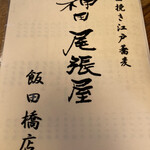 挽き江戸蕎麦
神田
尾張屋
飯田橋店